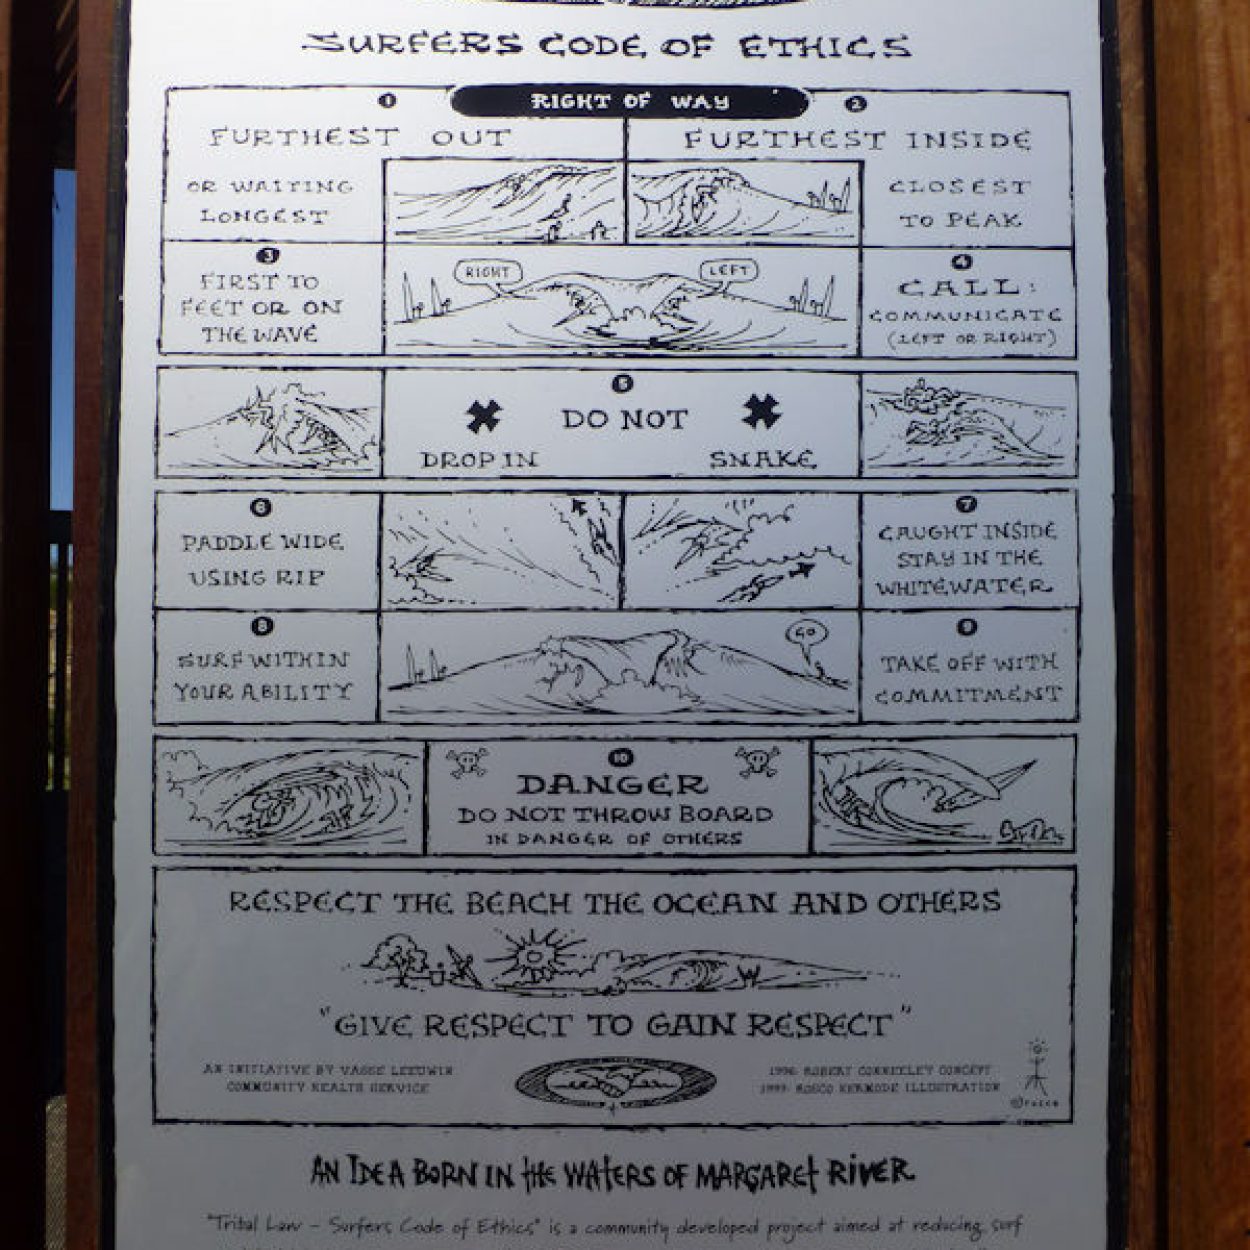 SURFERS CODE OF ETHICS
RIGHT OF WAY
1
FURTHEST OUT
OR WAITING
LONGEST
2
FURTHEST INSIDE
CLOSEST
TO PEAK
3
FIRST TO
FEET OR ON
THE WAVE
RIGHT
LEFT
4
CALL:
COMMUNICATE
(LEFT OR RIGHT)
5
DO NOT
DROP IN
SNAKE
6
PADDLE WIDE
USING RIP
7
CAUGHT INSIDE
STAY IN THE
WHITEWATER
8
SURF WITHIN
YOUR ABILITY
GO
9
TAKE OFF WITH
COMMITMENT
10
DANGER
DO NOT THROW BOARD
IN DANGER OF OTHERS
RESPECT THE BEACH THE OCEAN AND OTHERS
"GIVE RESPECT TO GAIN RESPECT"
AN INITIATIVE BY VASSE LEEUWIN
COMMUNITY HEALTH SERVICE
1996: ROBERT CONNEELEY CONCEPT
1999: ROSCO KERMODE ILLUSTRATION
©rocco
AN IDEA BORN IN the WATERS OF MARGARET RIVER
"Tribal Law - Surfers Code of Ethics" is a community developed project aimed at reducing surf